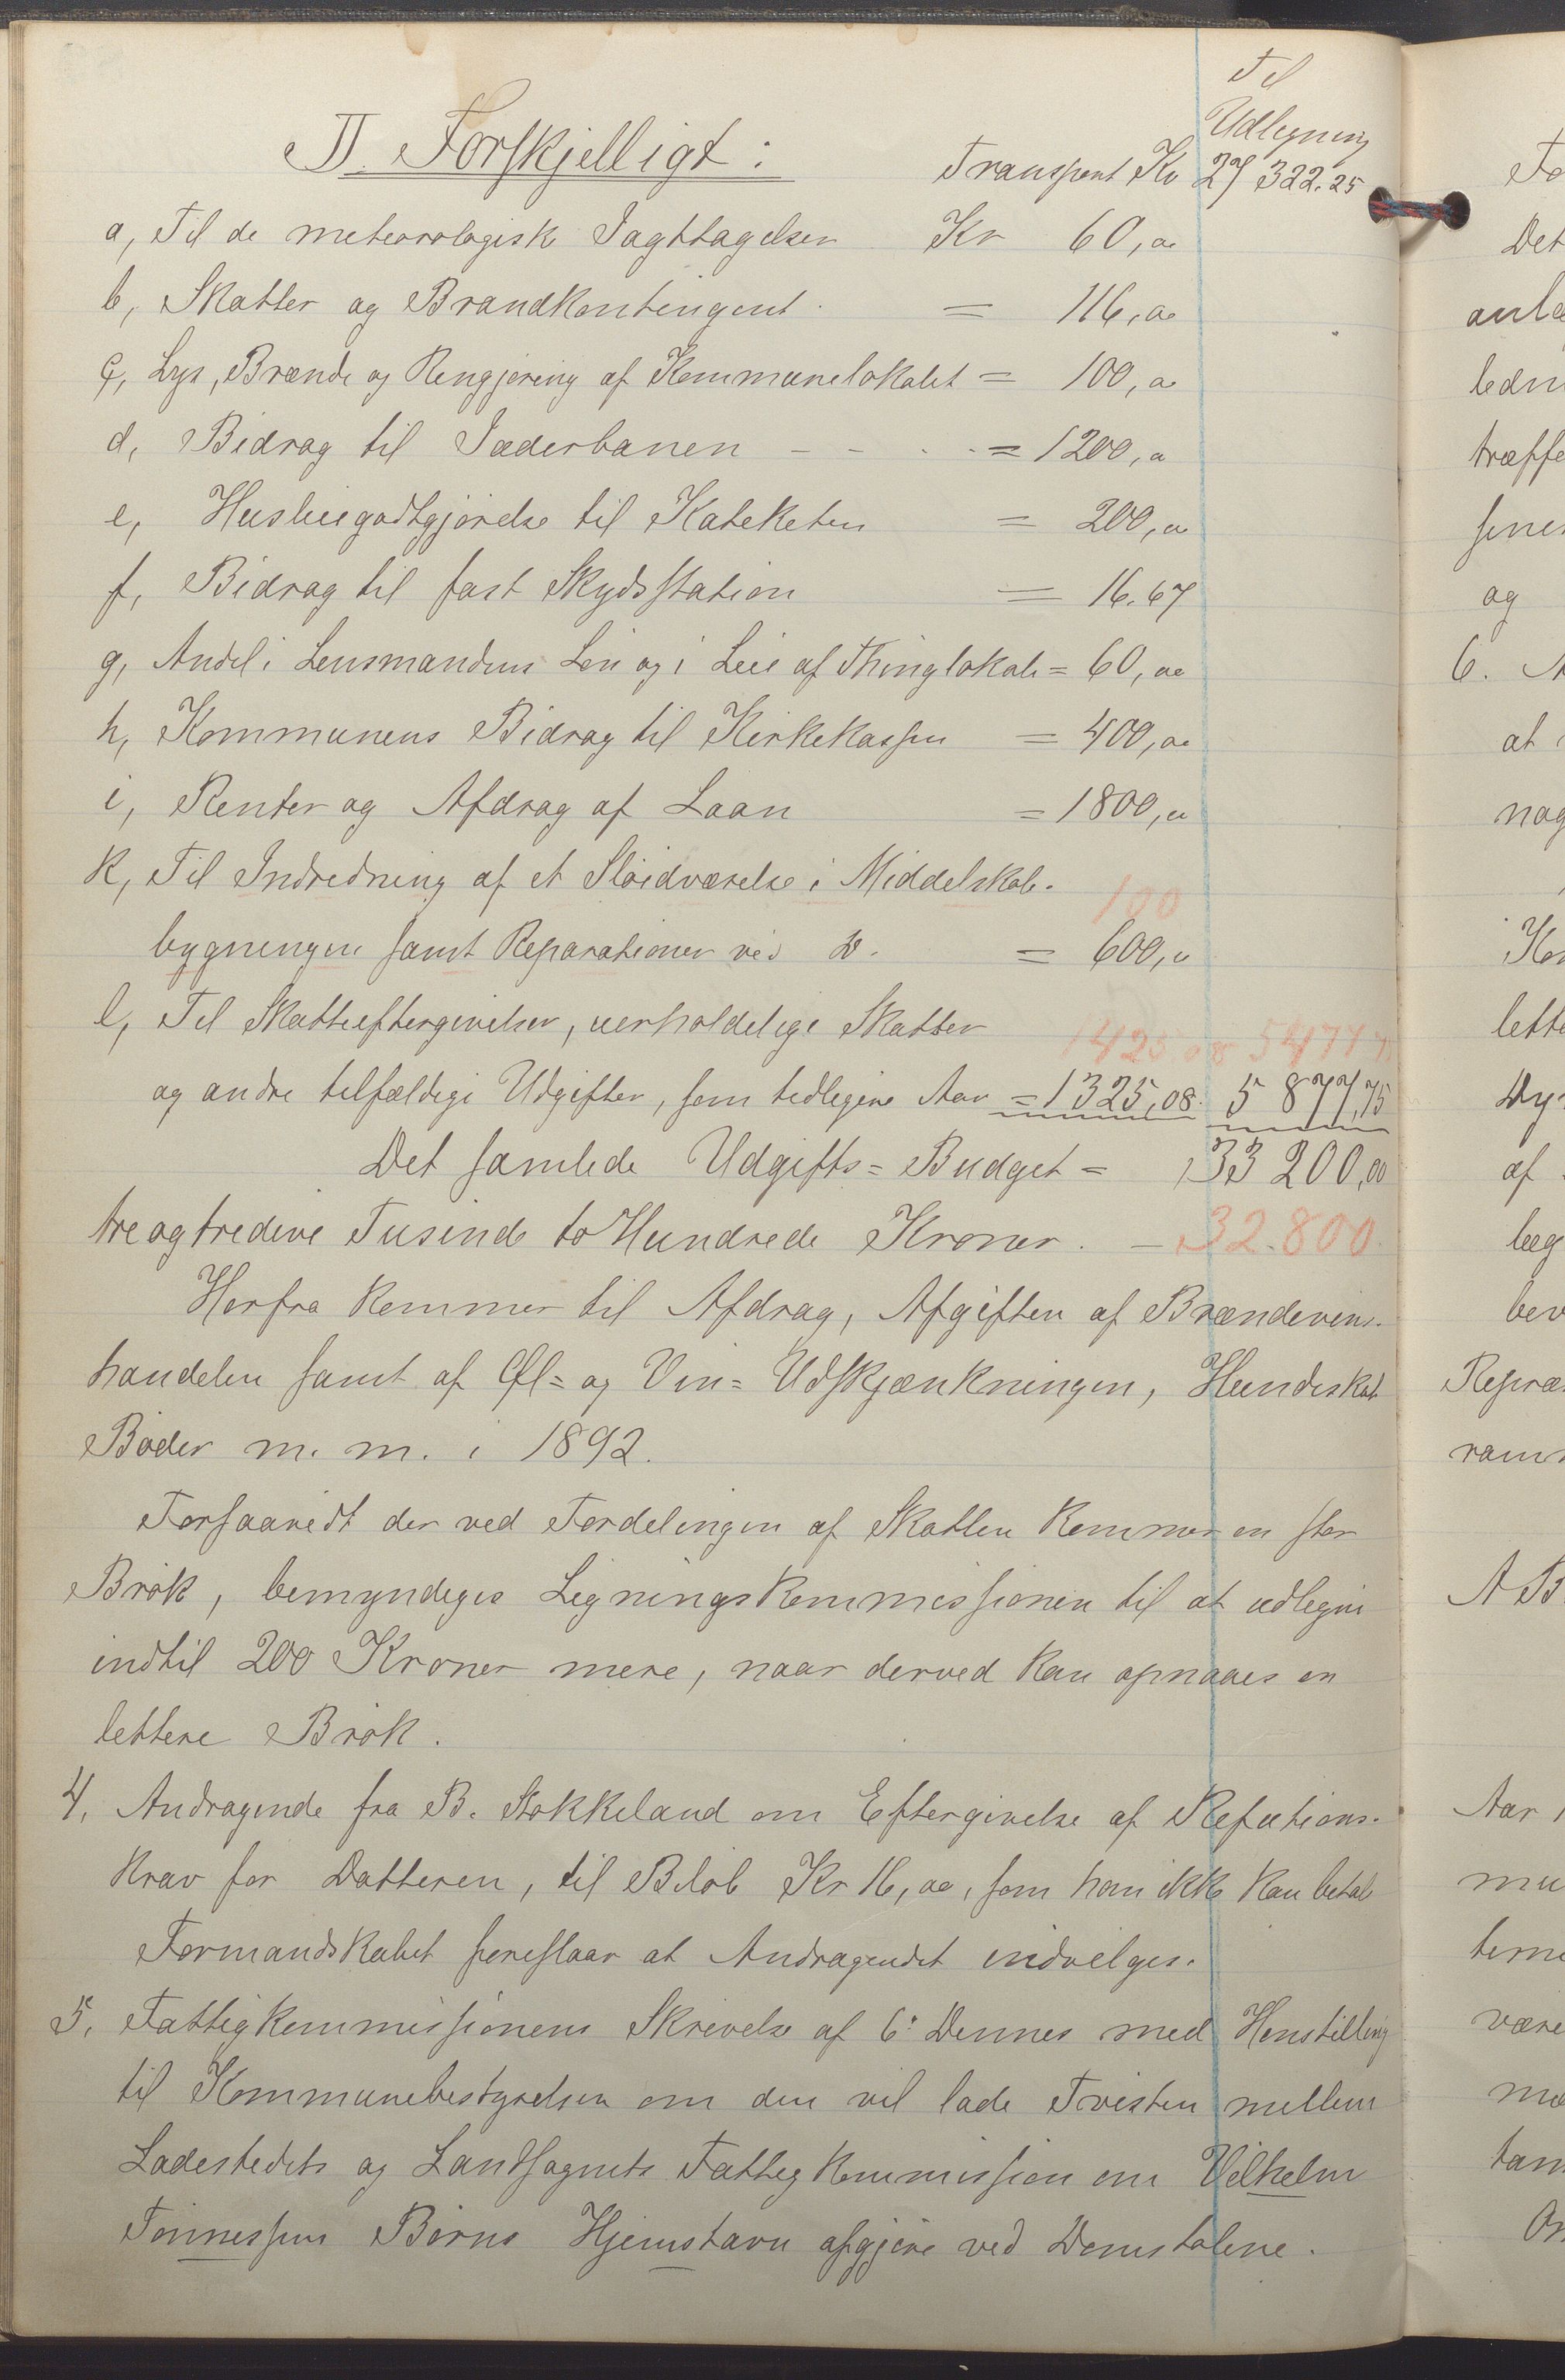 Til
Udligning
II. Forskjelligt:
Transport Kr 27 322.25
a, Til de meteorologisk Iagttagelser Kr 60,00
b, Skatter og Brandkontingent = 116,00
c, Lys, Brænde og Rengjøring af Kommunelokalet = 100,00
d, Bidrag til Jæderbanen - - . . = 1200,00
e, Husleiegodtgjørelse til Kateketen = 200,00
f, Bidrag til fast Skydsstation = 16.67
g, Andel i Lensmandens Løn og i Leie af Thinglokale = 60,00
h, Kommunens Bidrag til Kirkekassen = 400,00
i, Renter og Afdrag af Laan = 1800,00
k, Til Indredning af et Sløidværelse i Middelskole-
100
bygningen samt Reparationer ved do. = 600,00
l, Til Skatteeftergivelser, uerholdelige Skatter
1425 08 5477 75
og andre tilfældige Udgifter, som tidligere Aar = 1325,08. 5 877,75
Det samlede Udgifts=Budget = 33 200,00
treogtredive Tusinde to Hundrede Kroner. - 32.800.
Herfra kommer til Afdrag, Afgiften af Brændevins-
handelen samt af Øl= og Vin= Udskjænkningen, Hundeskat
Bøder m. m. i 1892.
Forsaavidt der ved Fordelingen af Skatten kommer en stor
Brøk, bemyndiges Ligningskommissionen til at udligne
indtil 200 Kroner mere, naar derved kan opnaaes en
lettere Brøk.
4. Andragende fra B. Stokkeland om Eftergivelse af Refutions-
krav for Datteren, til Beløb Kr 16,00, som han ikke kan betale
Formandskabet foreslaar at Andragendet indvilges.
5. Fattigkommissionens Skrivelse af 6: Dennes med Henstilling
til Kommunebestyrelsen om den vil lade Tvisten mellem
Ladestedets og Landsognets Fattigkommission om Vilhelm
Tønnessens Børns Hjemstavn afgjøre ved Domstolene.